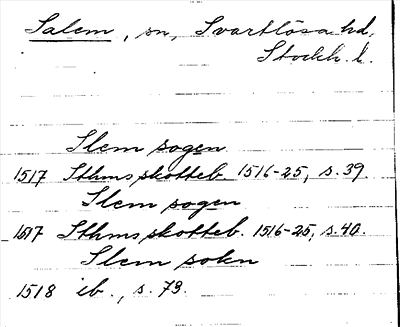 Salem, sn, Svartlösa hd,
Stockh. l.
Slem sogen
1517 Sthms skotteb. 1516-25, s. 39.
Slem sogen
1517 Sthms skotteb. 1516-25, s. 40.
Slem sokn
1518 ib., s. 73.